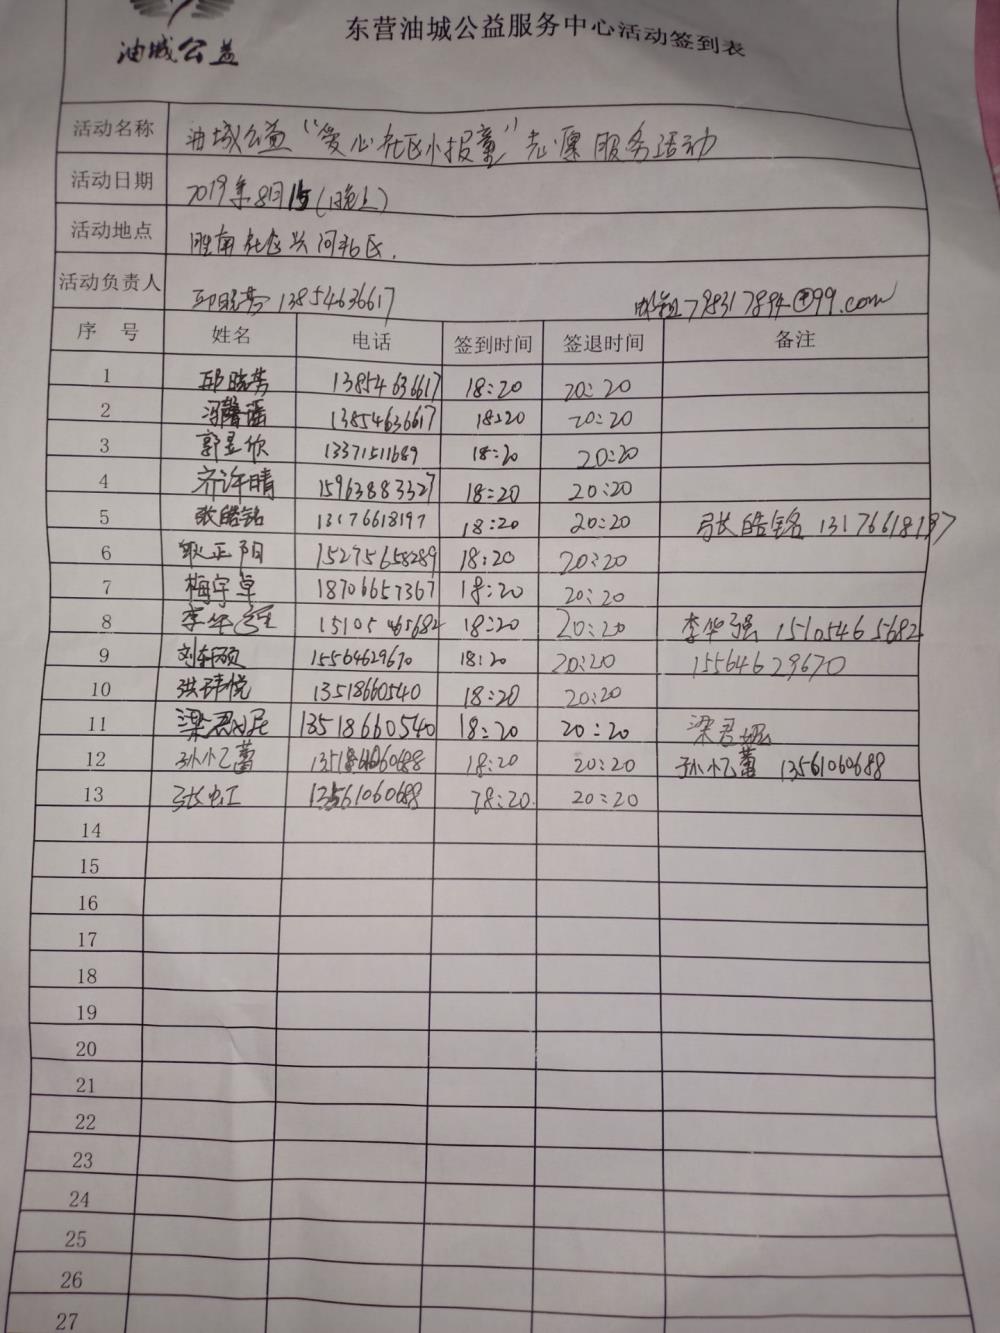 油城公益
东营油城公益服务中心活动签到表
活动名称 油城公益“爱心社区小报童”志愿服务活动
活动日期 2019年8月15(晚上)
活动地点 胜南社区兴河社区.
活动负责人 邱晓芳 13854636617 798317894@99.com
序号 姓名 电话 签到时间 签退时间 备注
1 邱晓芳 13854636617 18:20 20:20
2 冯馨谣 13854636617 18:20 20:20
3 郭昱欣 13371511689 18:20 20:20
4 齐许晴 15963883327 18:20 20:20
5 张皓铭 13176618197 18:20 20:20 张皓铭 13176618197
6 正阳 15275658289 18:20 20:20
7 梅宇卓 18706657367 18:20 20:20
8 李华强 15105465682 18:20 20:20 李华强 15105465682
9 刘轩硕 15564629670 18:20 20:20 15564629670
10 洪玮悦 13518660540 18:20 20:20
11 梁君妮 13518660540 18:20 20:20 梁君妮
12 孙小乙蕾 18:20 20:20 孙小乙蕾 13561060688
13 张虹 13561060688 18:20 20:20
14
15
16
17
18
19
20
21
22
23
24
25
26
27